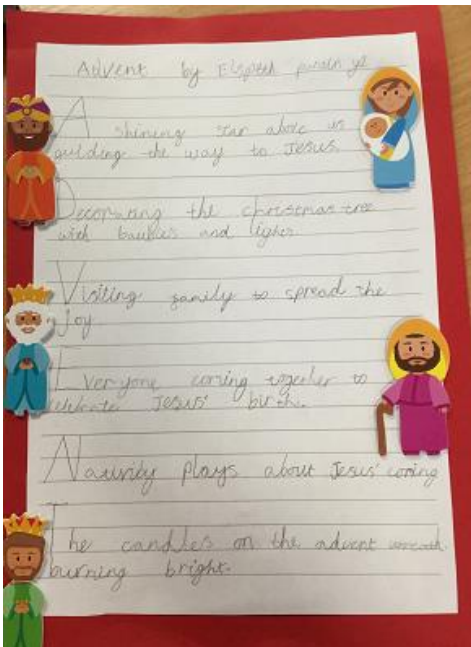 Advent by Elspeth
A shining star above us
guiding the way to Jesus.
Decorating the christmas tree
with baubles and lights.
Visiting family to spread the
joy
Everyone coming together to
celebrate Jesus' birth.
Nativity plays about Jesus' coming
The candles on the advent wreath
burning bright.